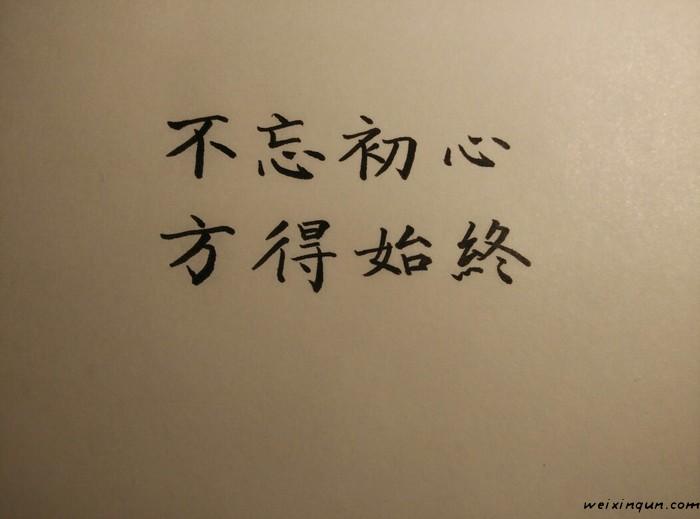 不忘初心
方得始終
weixinqun.com